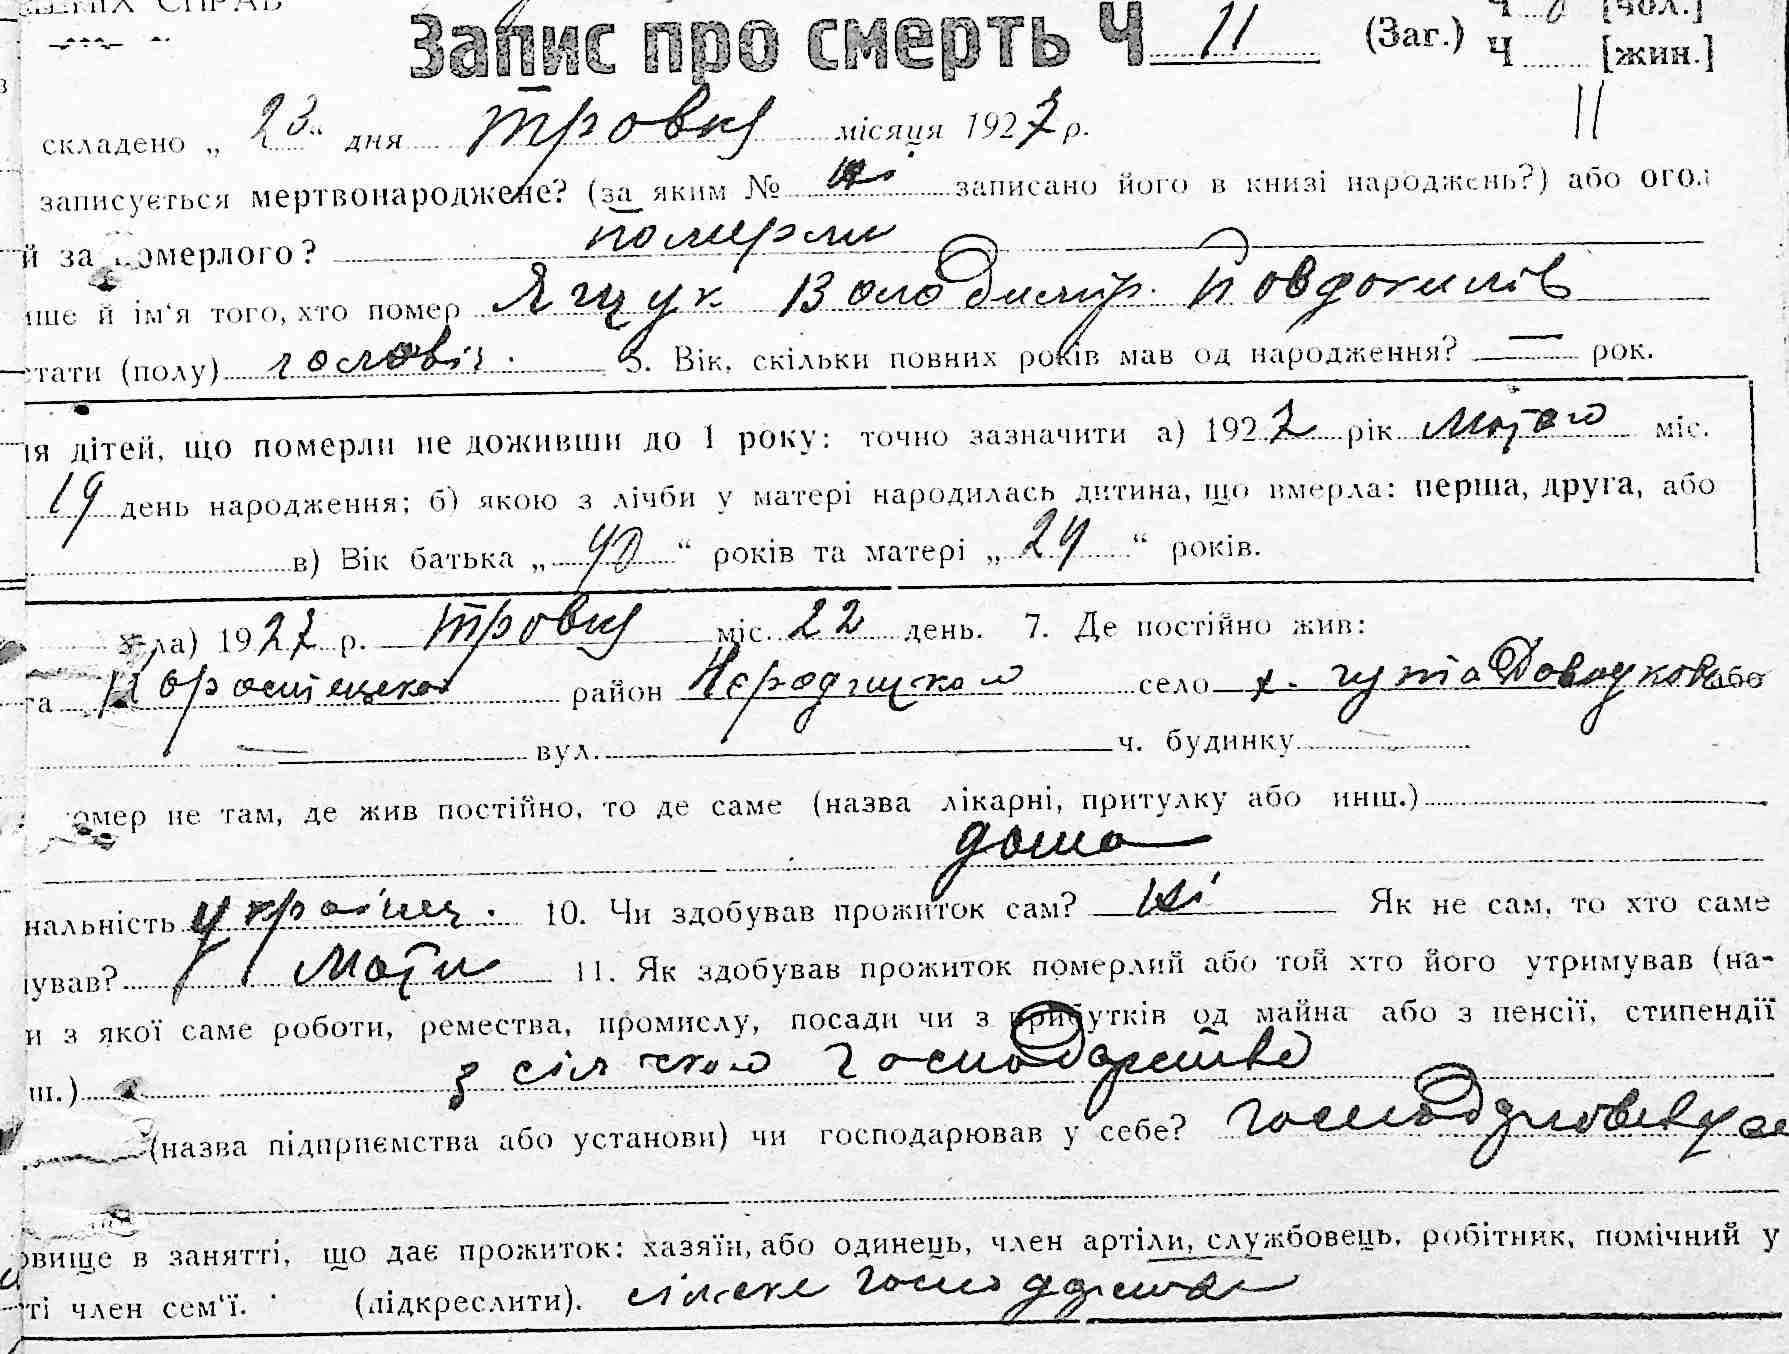 СПРАВ
Запис про смерть Ч 11 (Заг.) Ч [чол.]
Ч [жин.]
11
складено „ 23 “ дня травня місяця 1927 р.
записується мертвонароджене? (за яким № ні записано його в книзі народжень?) або огол
й за померлого? померли
ще й ім‘я того, хто помер Ящук Володимир. Йовдокимів
стати (полу) чоловіч. 5. Вік, скільки повних років мав од народження? — рок.
ля дітей, що померли не доживши до 1 року: точно зазначити а) 1927 рік Мотого міс.
19 день народження; б) якою з лічби у матері народилась дитина, що вмерла: перша, друга, або
в) Вік батька „ 40 “ років та матері „ 24 “ років.
ла) 1927 р. травня міс. 22 день. 7. Де постійно жив:
га Коростецкого район Народицкого село х. гута або
вул. ч. будинку
омер не там, де жив постійно, то де саме (назва лікарні, притулку або инш.)
дома
нальність українец. 10. Чи здобував прожиток сам? ні Як не сам, то хто саме
ував? Мати 11. Як здобував прожиток померлий або той хто його утримував (на-
и з якої саме роботи, ремества, промислу, посади чи з прибутків од майна або з пенсії, стипендії
ш.) з сільского господарства
(назва підприємства або установи) чи господарював у себе?
овище в занятті, що дає прожиток: хазяїн, або одинець, член артіли, службовець, робітник, помічний у
ті член сем‘ї. (підкреслити). сільске